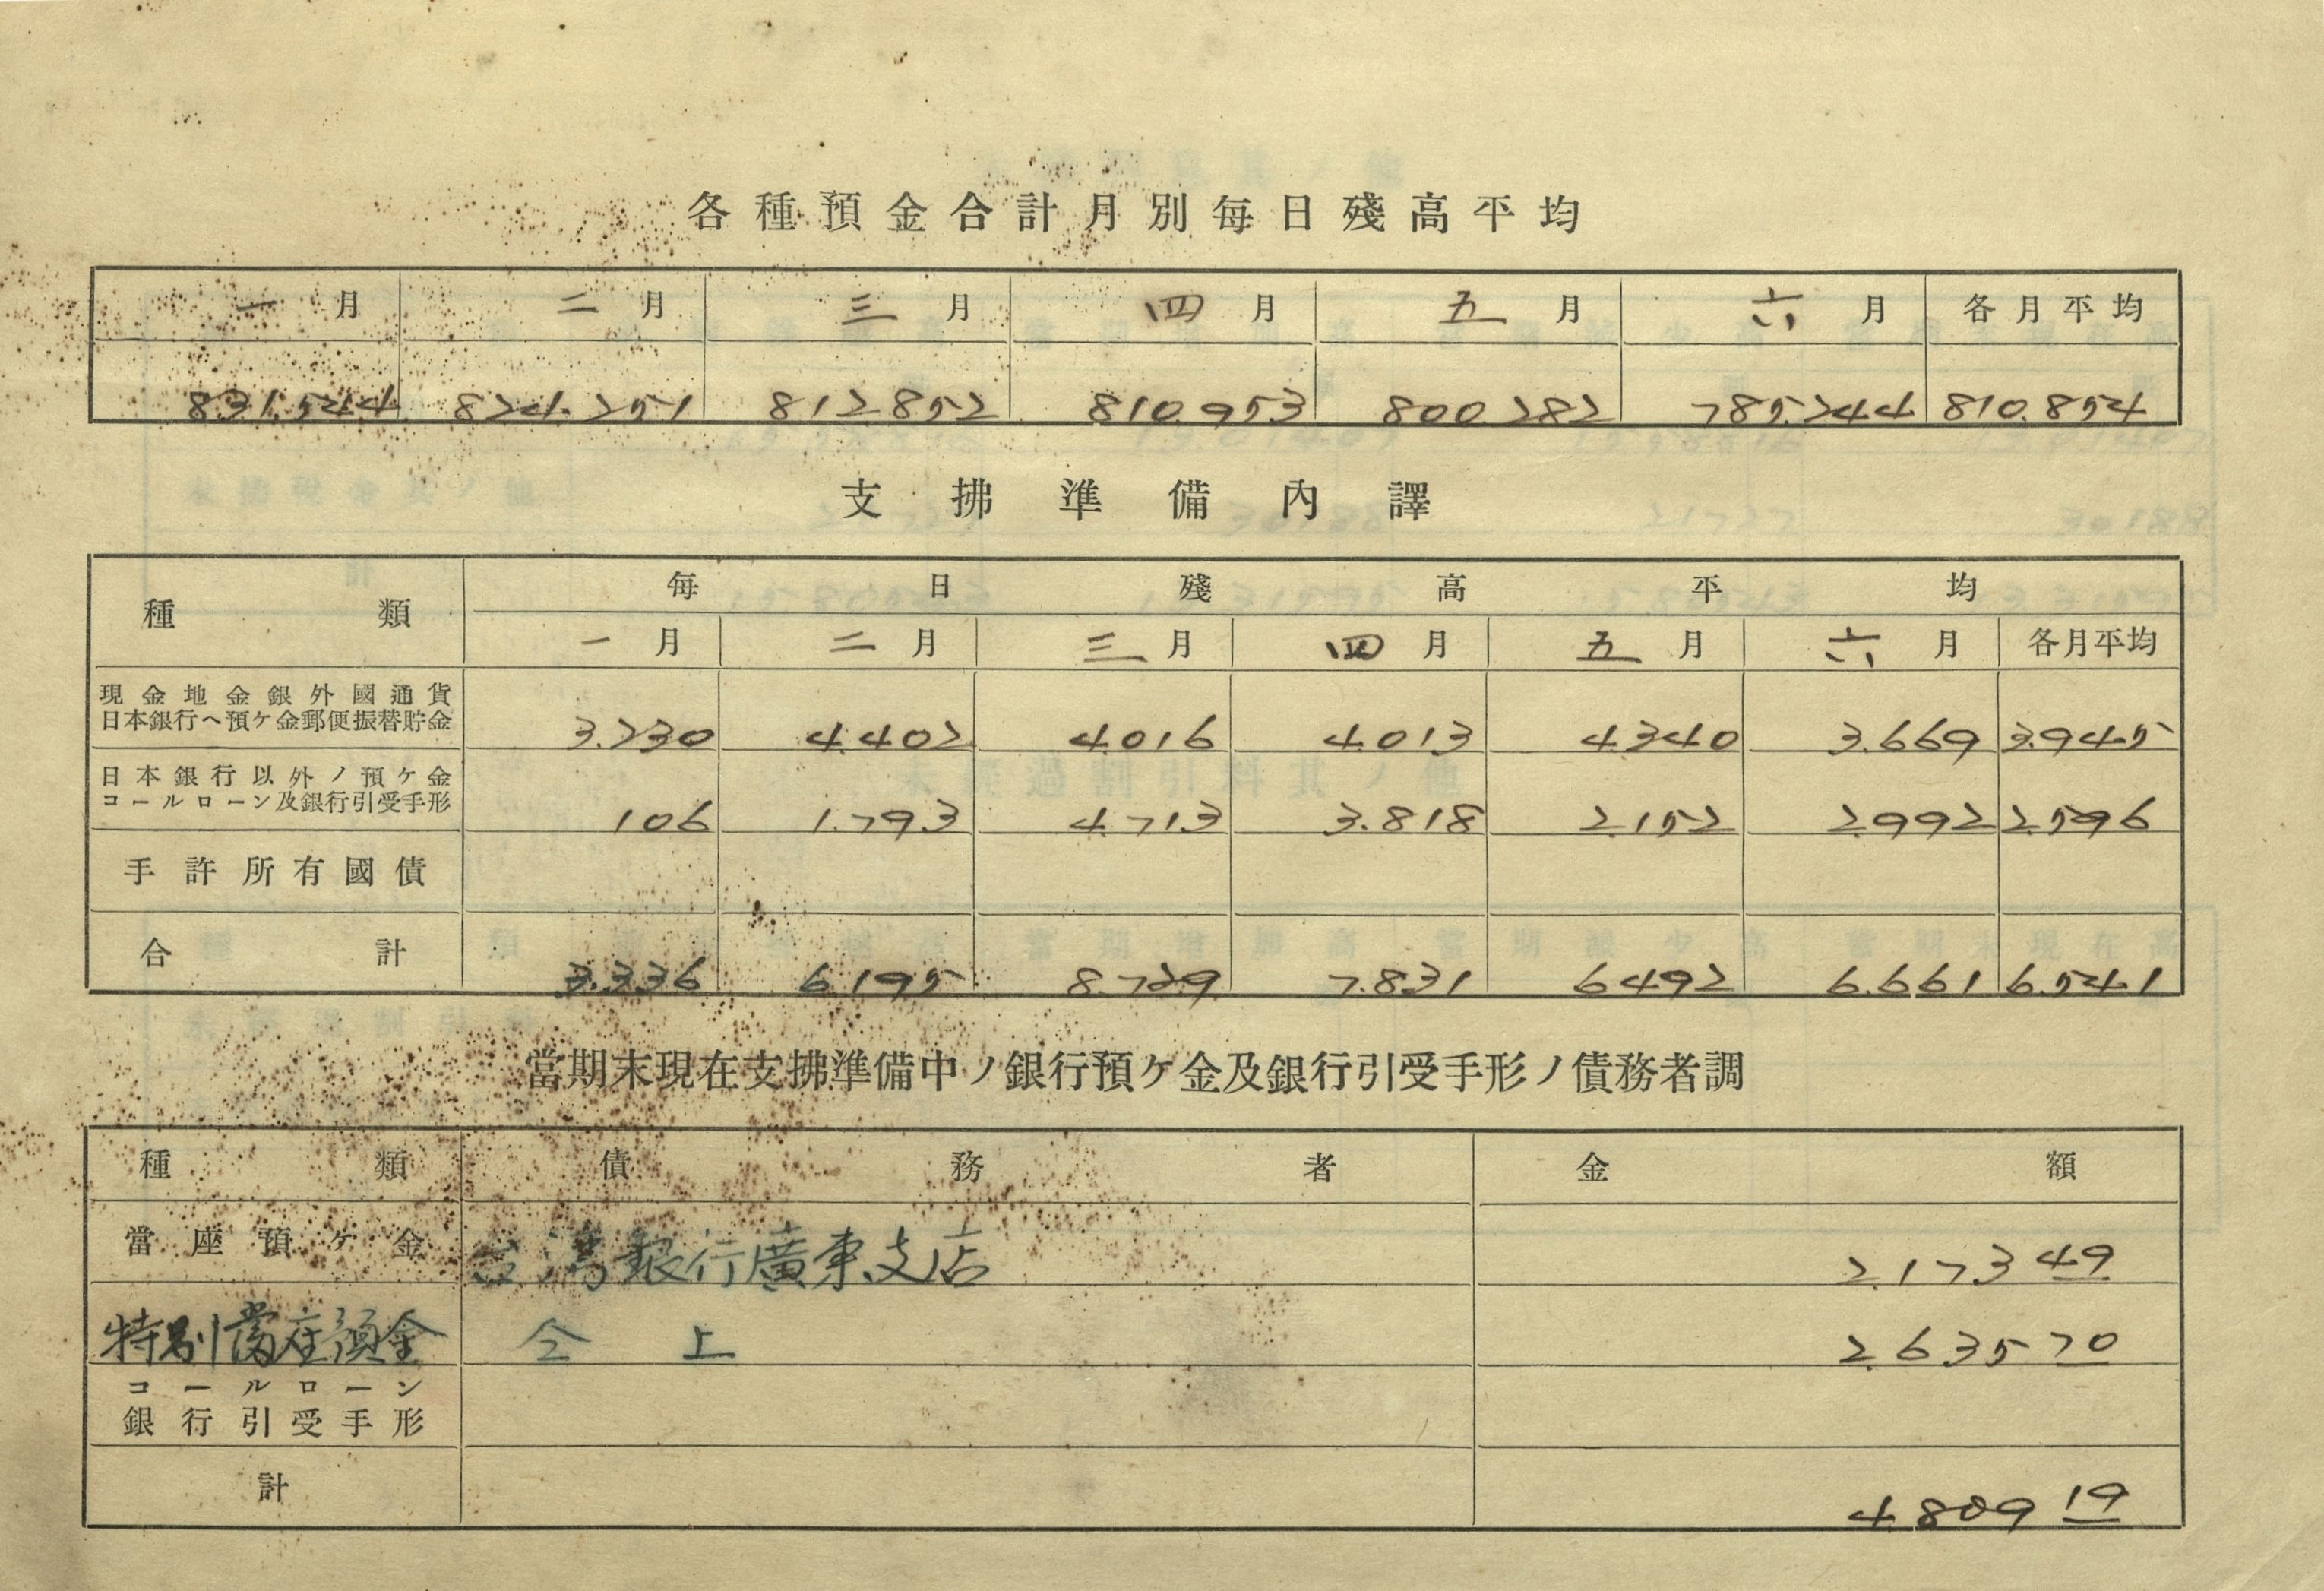 各種預金合計月別每日殘高平均
一月 二月 三月 四月 五月 六月 各月平均
831.544 824.251 812.852 810.953 800.282 785.244 810.854
支拂準備內譯
種類 每日殘高平均
一月 二月 三月 四月 五月 六月 各月平均
現金地金銀外國通貨
日本銀行ヘ預ケ金郵便振替貯金 3.230 4.402 4.016 4.013 4.340 3.669 3.945
日本銀行以外ノ預ケ金
コールローン及銀行引受手形 106 1.793 4.713 3.818 2.152 2.992 2.596
手許所有國債
合計 3.336 6.195 8.729 7.831 6.492 6.661 6.541
當期末現在支拂準備中ノ銀行預ケ金及銀行引受手形ノ債務者調
種類 債務者 金額
當座預ケ金 台湾銀行廣東支店 2.173 49
特別當座預金 仝上 2.635 70
コールローン
銀行引受手形
計 4.809 19